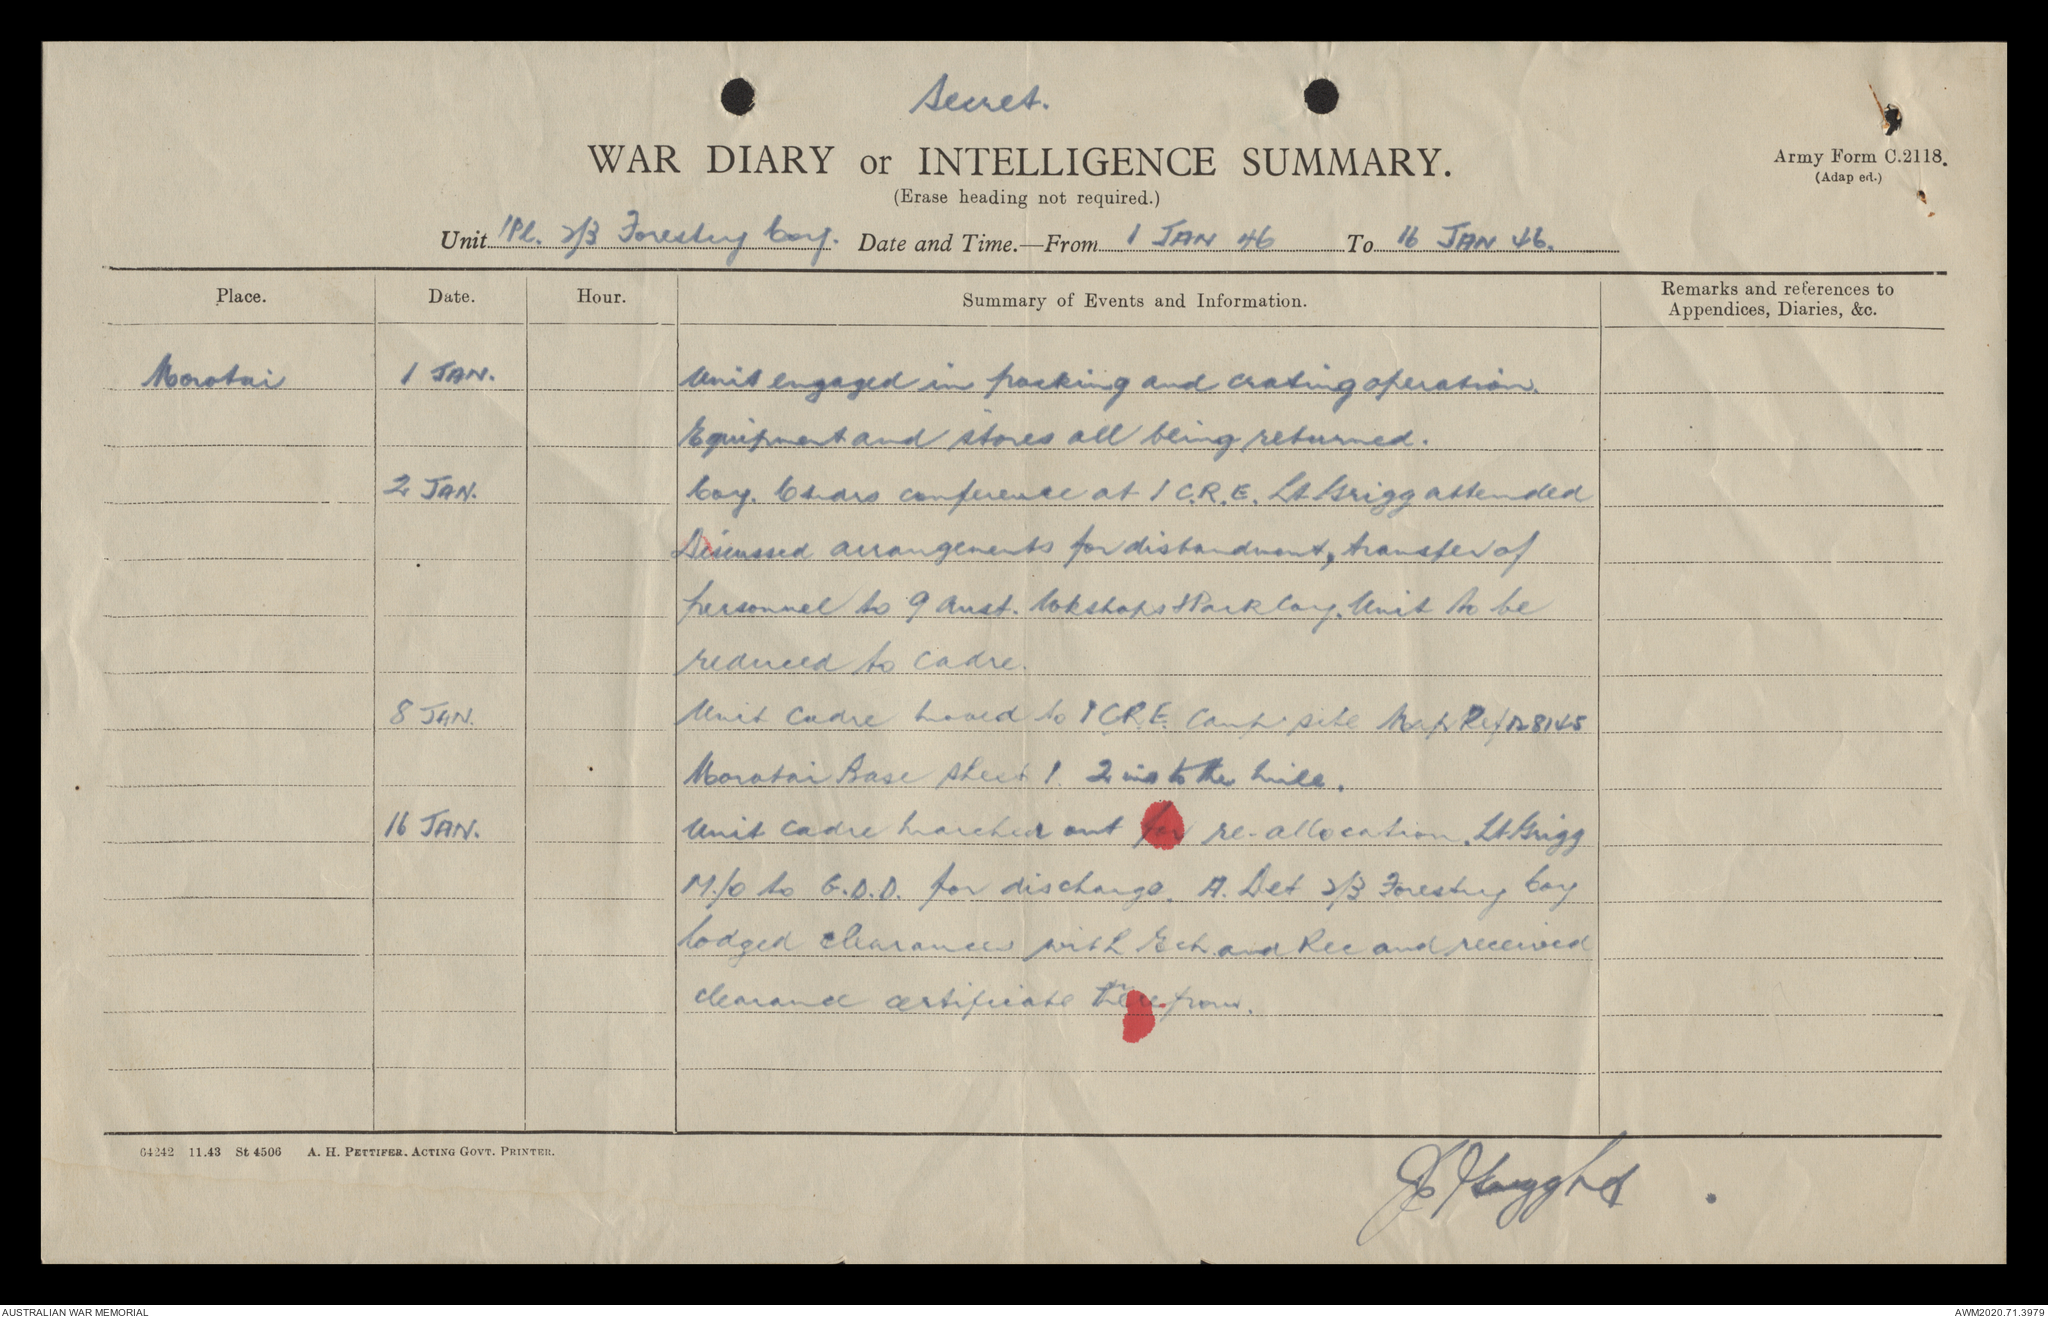 Secret.
WAR DIARY or INTELLIGENCE SUMMARY.
Army Form C.2118.
(Adap ed.)
(Erase heading not required.)
Unit 1Pl. 2/3 Forestry Coy. Date and Time.—From 1 JAN 46 To 16 JAN 46.
Place. Date. Hour. Summary of Events and Information. Remarks and references to
Appendices, Diaries, &c.
Morotai 1 JAN. Unit engaged in packing and crating operation.
Equipment and stores all being returned.
2 JAN. Coy. Comdrs conference at 1 C.R.E. Lt Grigg attended
Discussed arrangements for disbandment, transfer of
personnel to 9 Aust. Wkshops & Park Coy. Unit to be
reduced to cadre.
8 JAN. Unit cadre moved to 1 C.R.E. Camp site Map Ref 8145
Morotai Base sheet 1. 2 ins to the mile.
16 JAN. Unit cadre marched out for re-allocation. Lt Grigg
M/o to G.D.D. for discharge. A. Det 2/3 Forestry Coy
lodged clearances with Ech and Rec and received
clearance certificate therefrom.
64242 11.43 St 4506 A. H. PETTIFER. ACTING GOVT. PRINTER.
AUSTRALIAN WAR MEMORIAL
AWM2020.71.3979